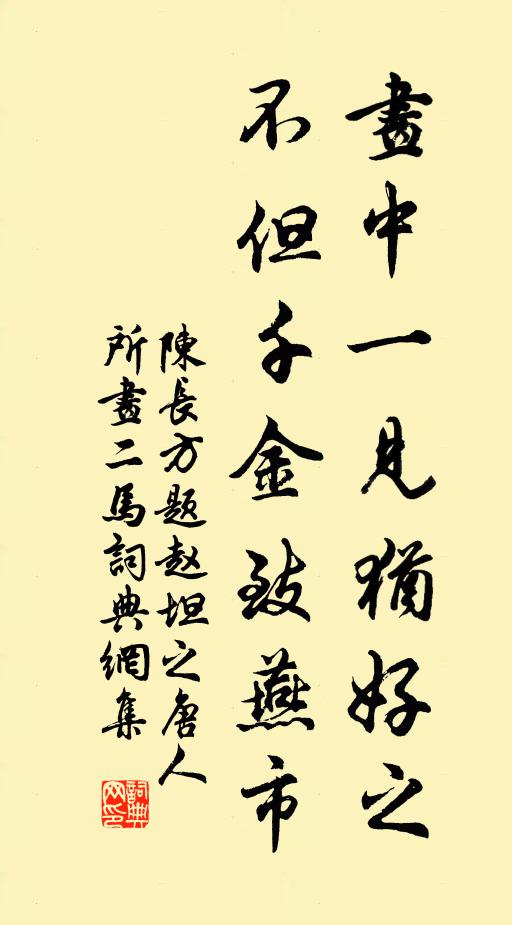 畫中一見猶好之
不但千金致燕市
陳長方题趙坦之唐人
所畫二馬詞典網集
詞典網印